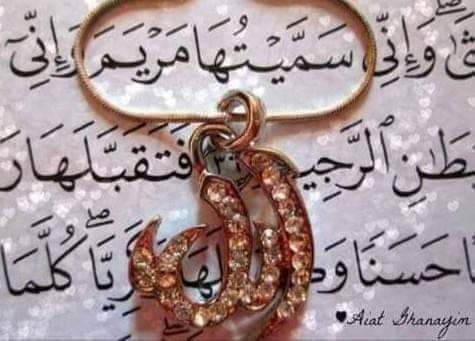 ثَىٰ وَإِنِّي سَمَّيْتُهَا مَرْيَمَ وَإِنِّي
يْطَٰنِ ٱلرَّجِيمِ ٣٦ فَتَقَبَّلَهَا رَ
ا حَسَنًا وَكَفَّلَهَا زَكَرِيَّا ۖ كُلَّمَا
الله
♥Aiat Ghanayim